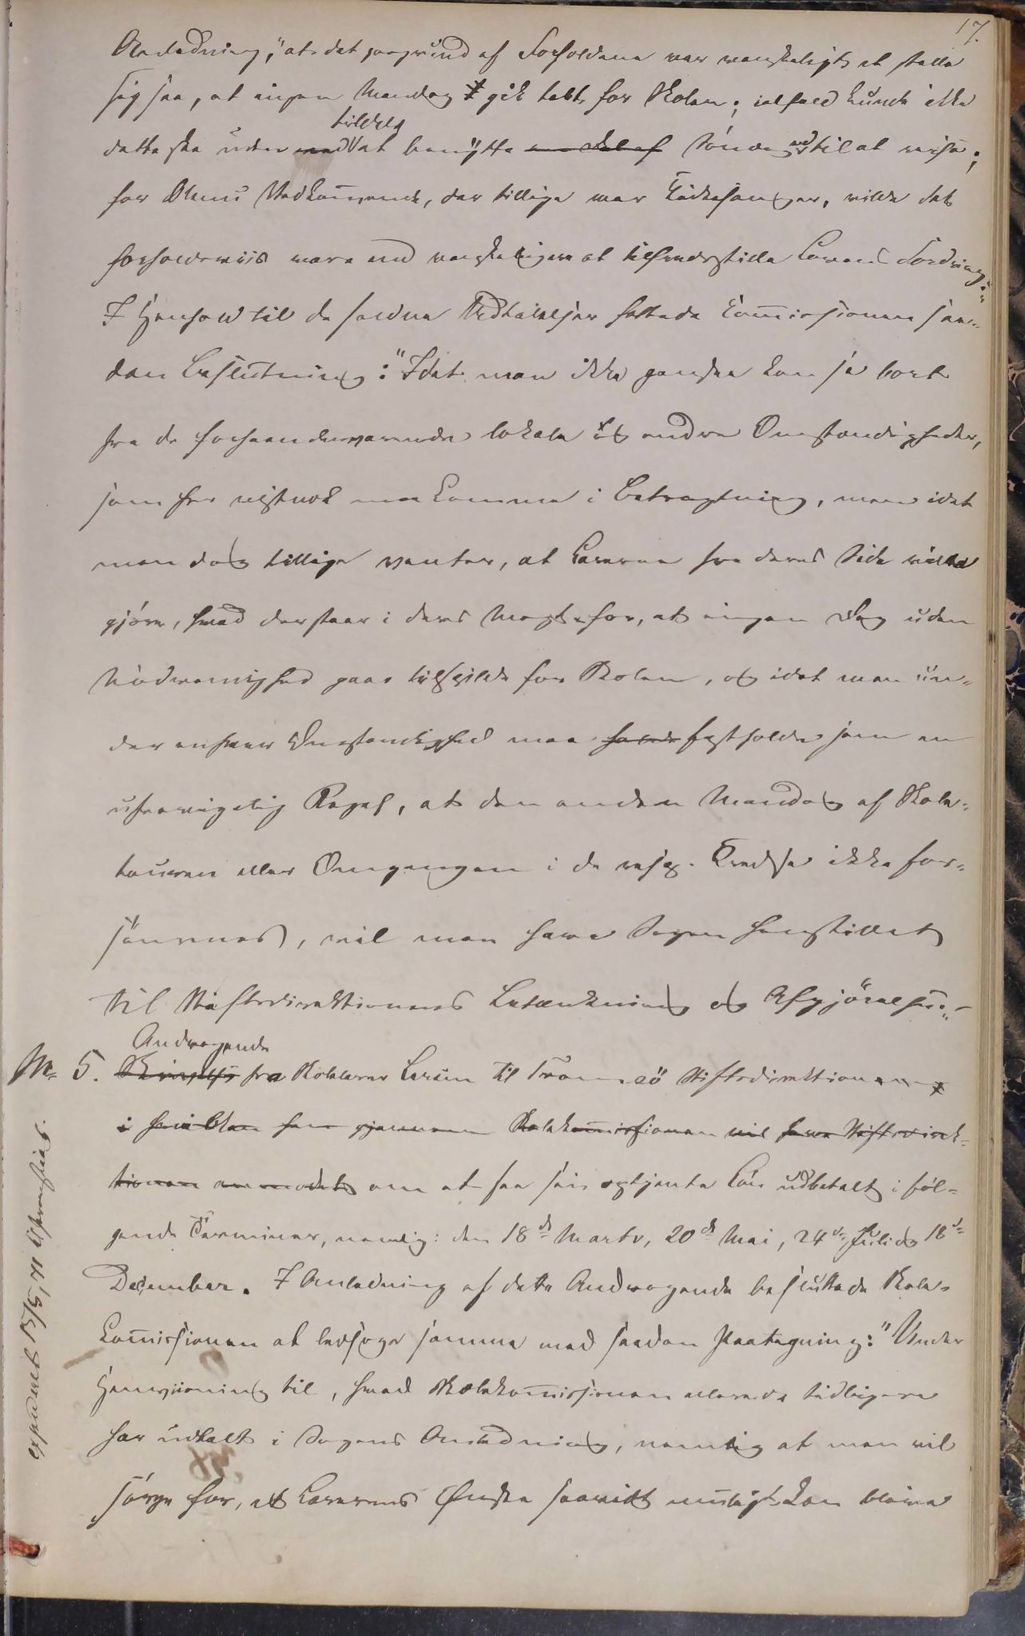 17.
Anledning, "at det paagrund af Forholdene var vanskeligt at stelle
sig saa, at ingen Mandag gik tabt for Skolen; ialfald kunde ikke
tildels
dette ske uden ved at benytte en Del af Sóndagen til at reise;
for Vedkommende, der tillige var Kirkesanger, vilde det
forholdsviis være end vanskeligere at tilfredsstille Lovens Fordring."
I Henhold til de saadne Udtalelser fattede Commissionen saa-
dan Beslutning: "Idet man ikke ganske kan sé bort
fra de forhaandenværende lokale og andre Omstændigheder,
som her vistnok maa komme i Betragtning, men idet
man dog tillige venter, at Lærerne fra deres Side ville
gjóre, hvad der staar i deres Magt for, at ingen Dag uden
Nódvendighed gaar tilspilde for Skolen, og idet man un-
der enhver Omstændighed maa holde fastholde som en
ufravigelig Regel, at den anden Mandag af Skole-
touren eller Omgangen i de resp. Kredse ikke for-
sómmes, vil man have Sagen henstillet
til Stiftsdirektionens Betænkning og Afgjórelse."
Andragende
No 5. fra Skolelærer Larsen til Tromsö Stiftsdirektion
i hvilken gjennem Skolekommissionen vil have Stiftsdirek-
tionen anmodet om at faa sin optjente Lón udbetalt i föl-
gende Terminer, nemlig: den 18de Marts, 20de Mai, 24de Juli og 18de
December. I Anledning af dette Andragende besluttede Skole-
Commissionen at ledsage samme med saadan Paategning: "Under
Henviisning til, hvad Skolekommissionen allerede tidligere
har udtalt i Sagens Anledning, nemlig at man vil
sörge for, at Lærernes Ønske saavidt muligt kan blive
expederet 15/5, 71